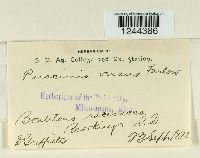 1244386
HERBARIUM OF
S. D. Ag. College and Ex. Station.
Puccinia vexans Farlow
Herbarium of the University,
Bouteloua racemosa
Brookings S.D.
D Griffiths Sept. 1892